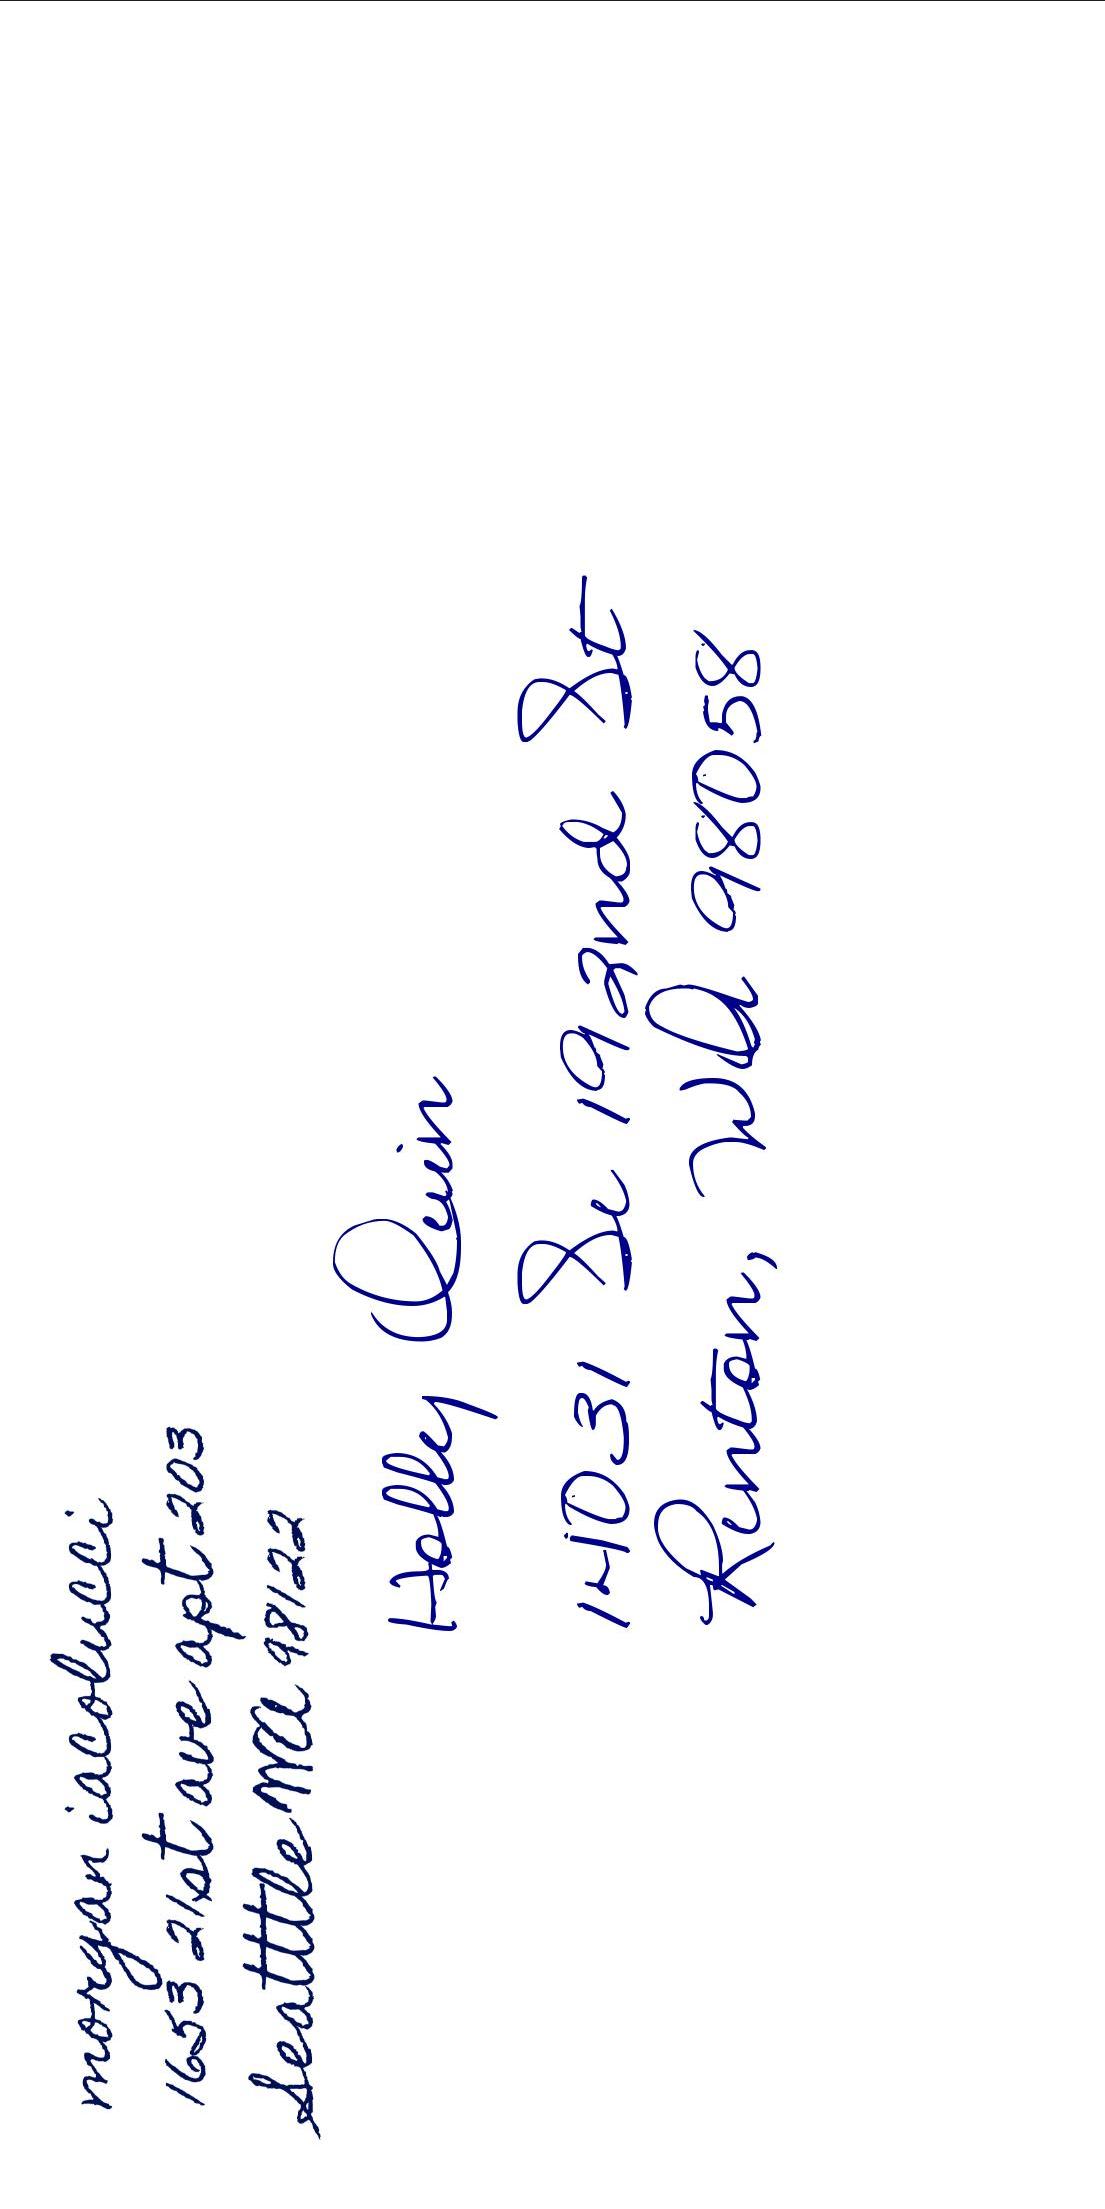 morgan iacolucci
1653 21st ave apt 203
Seattle WA 98122
Holly Quin
14031 Se 192nd St
Renton, WA 98058